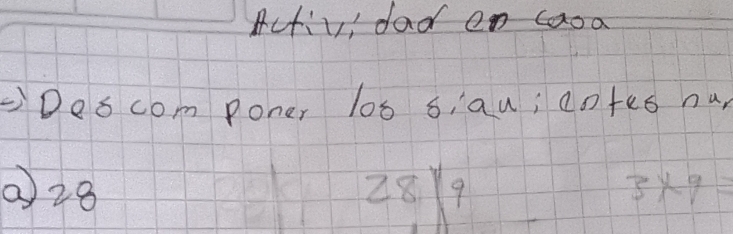 Actividad en casa
=) Descomponer los siguientes nu
a) 28 28 9 3x9=